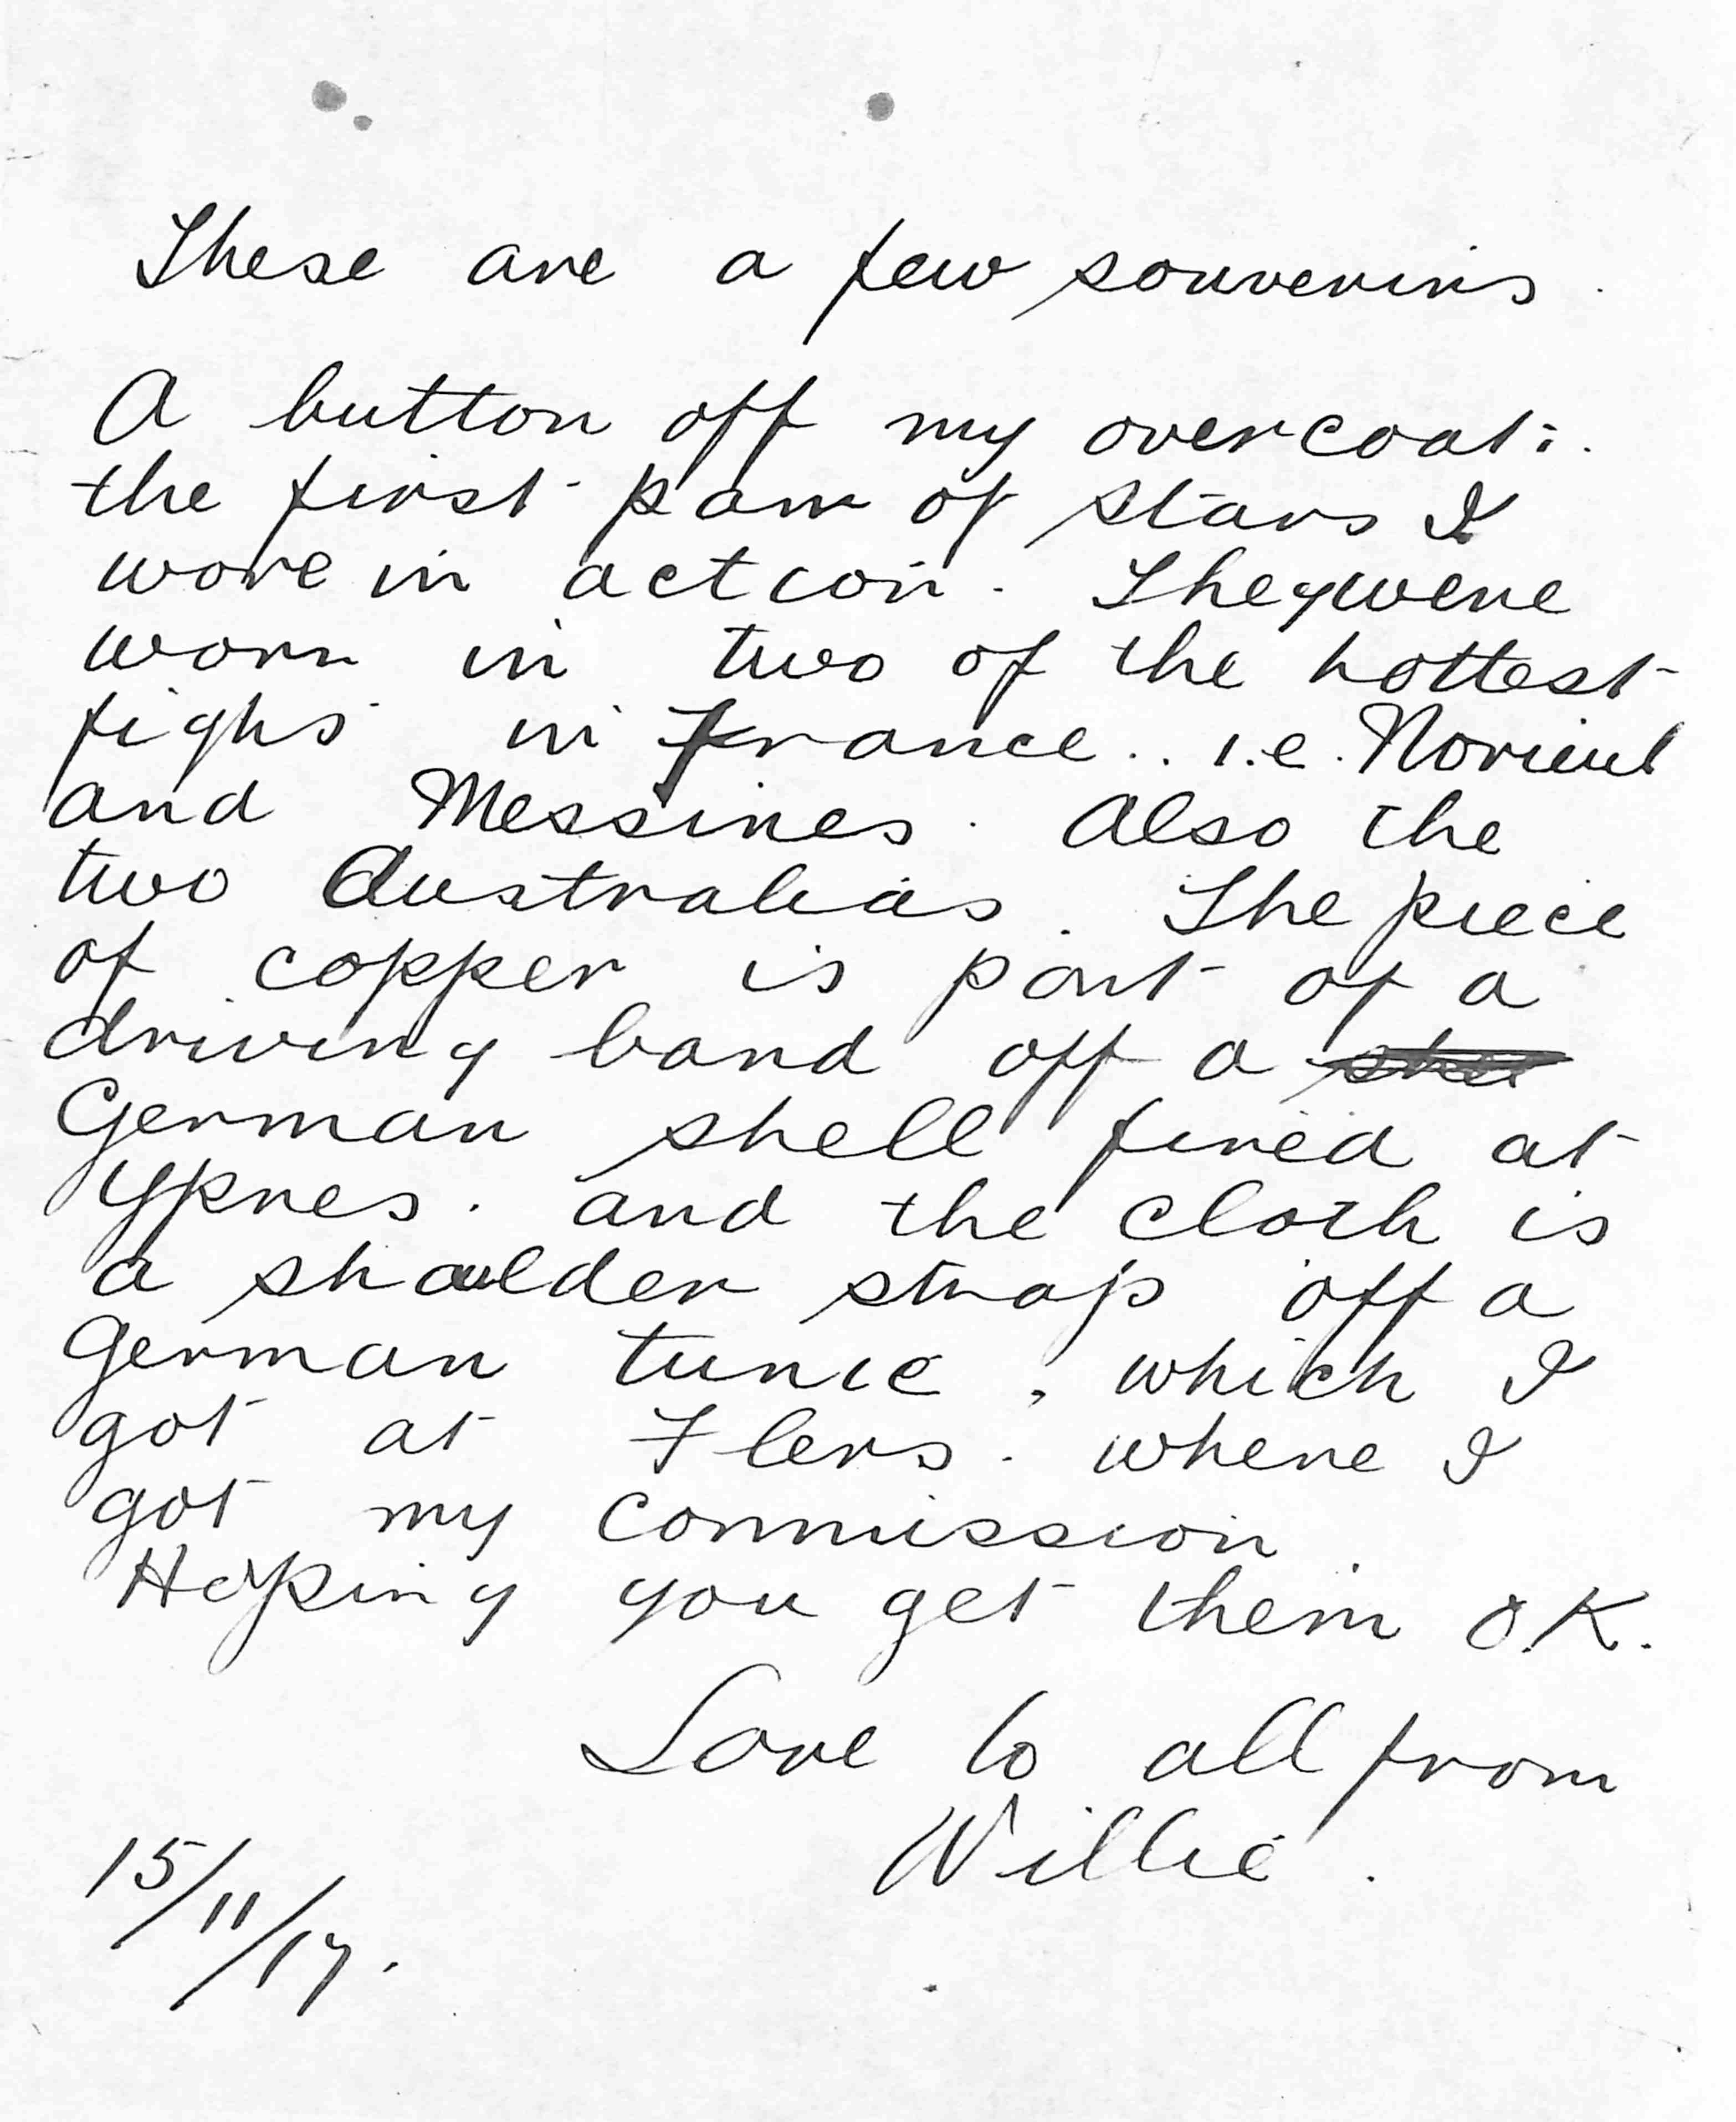 These are a few souvenirs.
A button off my overcoat:.
the first pair of stars I
wore in action. They were
worn in two of the hottest
fighs in France.. i.e. Norieul
and Messines. Also the
two Australias. The piece
of copper is part of a
driving band off a she
German shell fired at
Ypres. and the cloth is
a shoulder strap off a
German tunic, which I
got at Flers. where I
got my Commission.
Hoping you get them O.K.
Love to all from
Willie.
15/11/17.